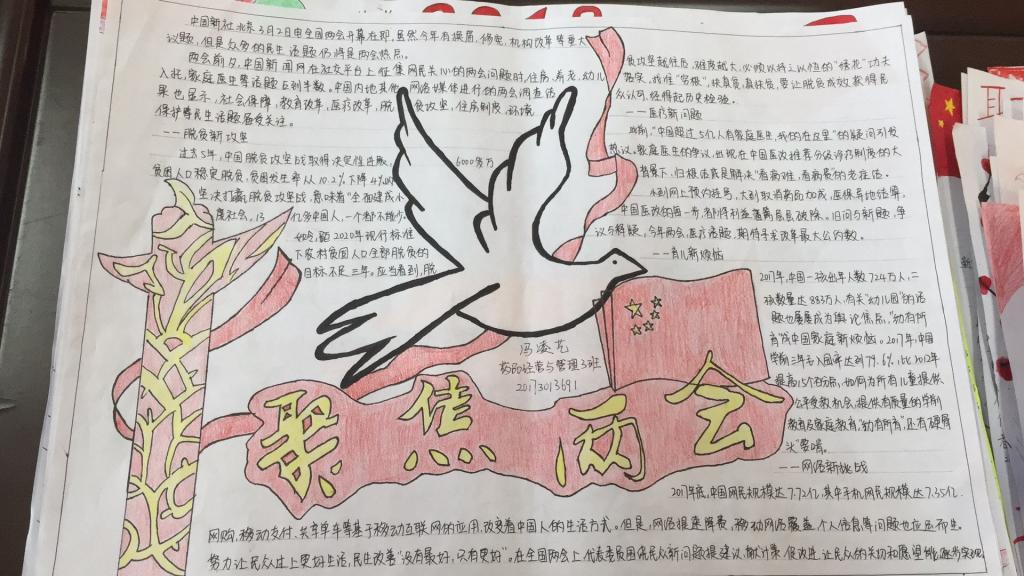 中国新社北京3月2日电全国两会开幕在即,虽然今年有换届、修宪、机构改革等重大
议题,但是众多的民生话题仍将是两会热点。
两会前夕,中国新闻网在社交平台上征集网民关心的两会问题时,住房、养老、幼儿
入托,家庭医生等话题占到半数。中国内地其他网络媒体进行的两会调查结
果也显示,社会保障,教育改革,医疗改革,脱贫攻坚,住房制度,环境
保护等民生话题备受关注。
——脱贫新攻坚
过去5年,中国脱贫攻坚战取得决定性进展,6000多万
贫困人口稳定脱贫,贫困发生率从10.2%下降4%以
坚决打赢脱贫攻坚战,意味着"全面建成小
康社会,13亿多中国人,一个都不能少
如今,距2020年现行标准
下农村贫困人口全部脱贫的
目标不足三年。应当看到,脱
贫攻坚越往后,难度越大,必须以持之以恒的"绣花"功夫
真扶贫,要让脱贫成效获得民
众认可,经得起历史检验。
——医药新问题
"中国超过5亿人有家庭医生,我的在哪里"的疑问引发
热议。家庭医生的争议,出现在中国医改推荐分级诊疗制度的大
背景下,归根结底是解决"看病难,看病贵的老话。
从到网上预约挂号,大到取消药品加成,医保异地结算,
中国医改的每一步
今年两会,医疗话题,期待寻求改革最大公约数。
——育儿新烦恼
2017年,中国一孩出生人数724万人,二
孩数量达883万人,有关"幼儿园"的话
题也屡屡成为舆论焦点,"幼有所
育成中国家庭新烦恼。2017年,中国
学前三年毛入园率达到79.6%,比2012年
提高15个百分点,如何为所有儿童提供
公平受教机会,提供有质量的学前
教育及家庭教育,"幼有所育",还有硬骨
头"要啃。
——网络新挑战
2017年底,中国网民规模达7.72亿,其中手机网民规模达7.35亿.
网购,移动支付,共享单车等基于移动互联网的应用,改变着中国人的生活方式。但是,网络提速降费,移动网络覆盖,个人信息等问题也应运而生。
努力让民众过上更好生活,民生改善"没有最好,只有更好"。在全国两会上,代表委员围绕民众新问题提建议,献计策,促改进,让民众的关切和愿望能逐步实现
冯凌艺
药品经营与管理3班
20173013691
聚焦两会